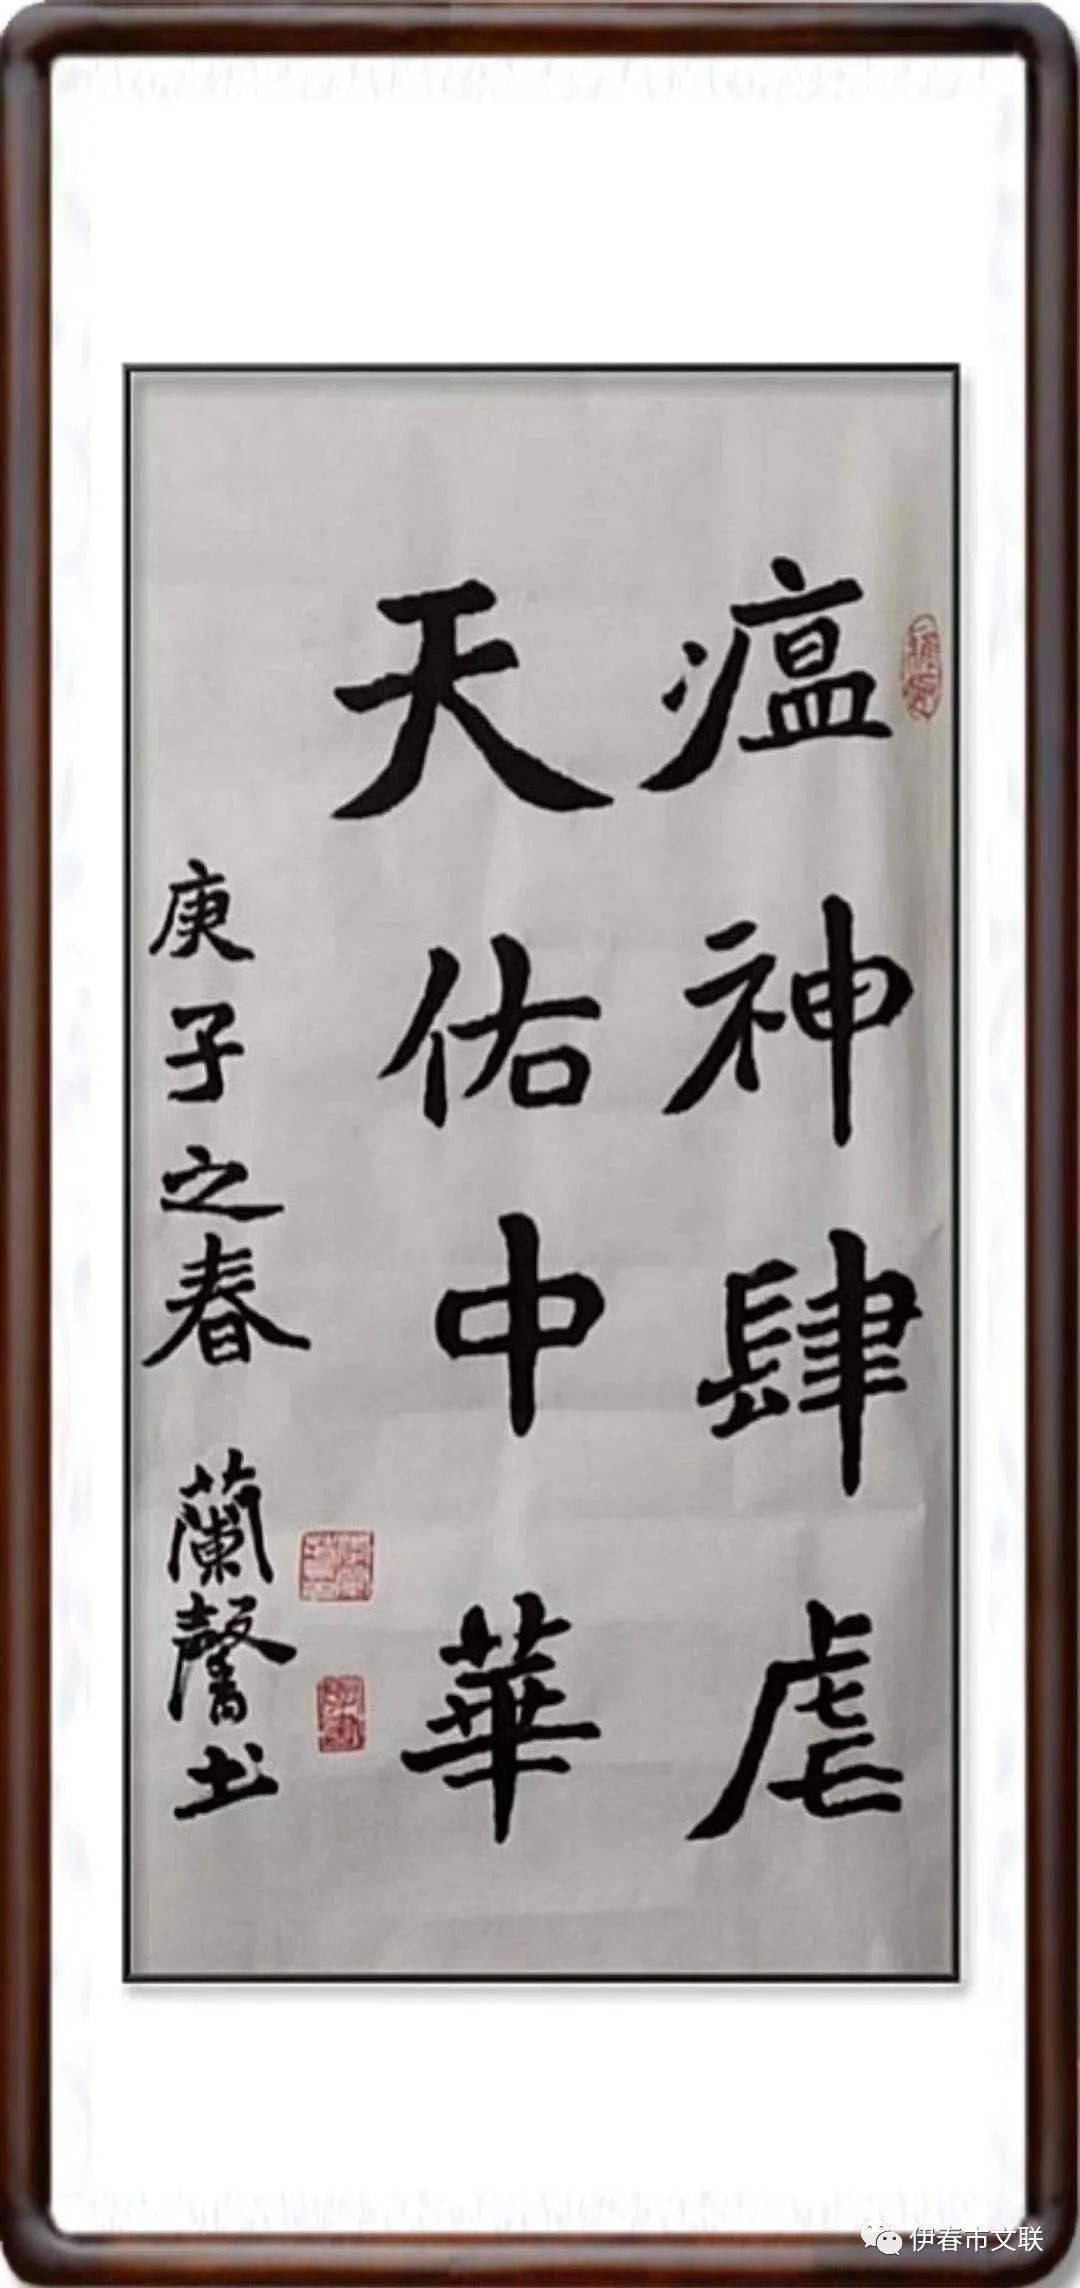 瘟神肆虐
天佑中華
庚子之春 蘭馨书
伊春市文联